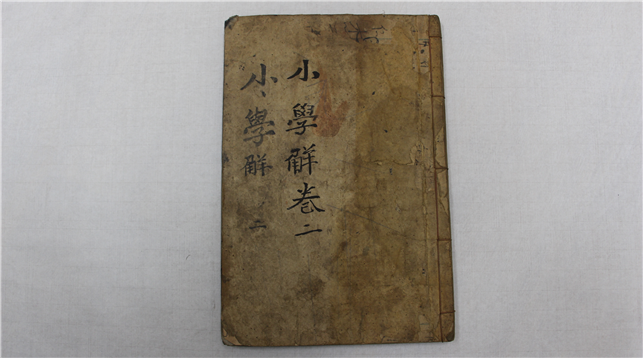 小學觧卷二
小學觧 二